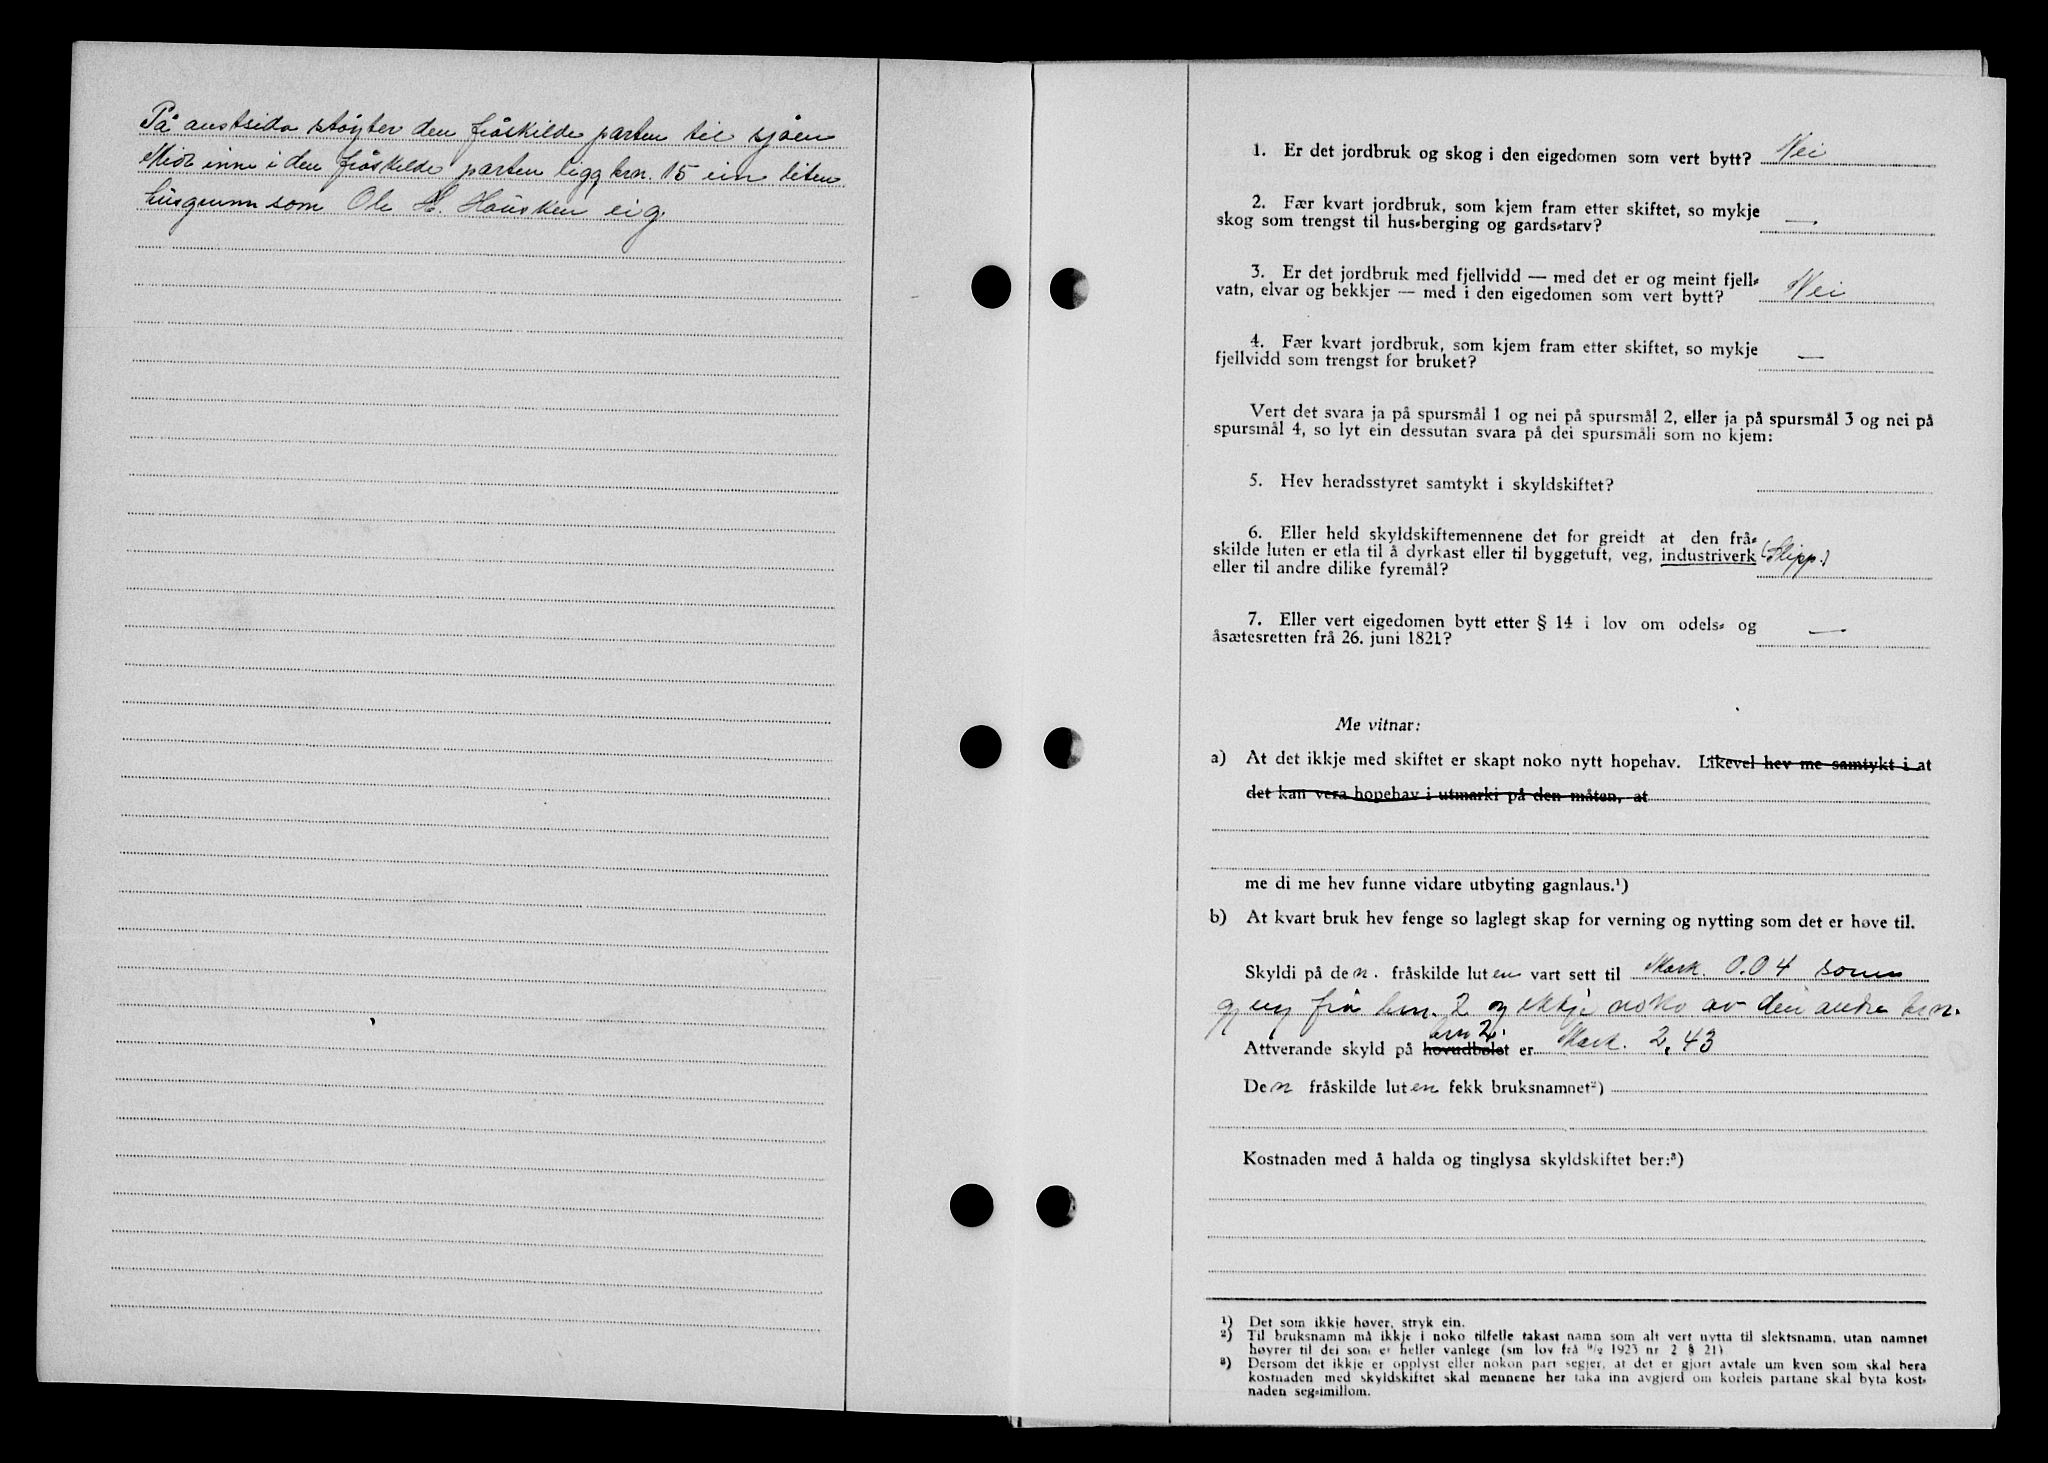 På austsida støyter den fråskilde parten til sjøen
Midt inne i den fråskilde parten ligg brn. 15 ein liten
husgrunn som Ole H. Hausken eig.
1. Er det jordbruk og skog i den eigedomen som vert bytt? Nei
2. Fær kvart jordbruk, som kjem fram etter skiftet, so mykje
skog som trengst til hus-berging og gards-tarv? —
3. Er det jordbruk med fjellvidd — med det er og meint fjell-
vatn, elvar og bekkjer — med i den eigedomen som vert bytt? Nei
4. Fær kvart jordbruk, som kjem fram etter skiftet, so mykje
fjellvidd som trengst for bruket? —
Vert det svara ja på spursmål 1 og nei på spursmål 2, eller ja på spursmål 3 og nei på
spursmål 4, so lyt ein dessutan svara på dei spursmåli som no kjem:
5. Hev heradsstyret samtykt i skyldskiftet?
6. Eller held skyldskiftemennene det for greidt at den frå-
skilde luten er etla til å dyrkast eller til byggetuft, veg, industriverk (Slipp.)
eller til andre dilike fyremål?
7. Eller vert eigedomen bytt etter § 14 i lov om odels- og
åsætesretten frå 26. juni 1821? —
Me vitnar:
a) At det ikkje med skiftet er skapt noko nytt hopehav. Likevel hev me samtykt i at
det kan vera hopehav i utmarki på den måten, at
me di me hev funne vidare utbyting gagnlaus.¹)
b) At kvart bruk hev fenge so laglegt skap for verning og nytting som det er høve til.
Skyldi på den. fråskilde luten vart sett til Mark. 0.04 som
gjeng frå brn. 2 og ikkje noko av den andre brn.
brn 2.
Attverande skyld på hovudbølet er Mark. 2,43
Den fråskilde luten fekk bruksnamnet²)
Kostnaden med å halda og tinglysa skyldskiftet ber:³)
¹) Det som ikkje høver, stryk ein.
²) Til bruksnamn må ikkje i noko tilfelle takast namn som alt vert nytta til slektsnamn, utan namnet
høyrer til dei som er heller vanlege (sm lov frå ⁹/₂ 1923 nr 2 § 21)
³) Dersom det ikkje er opplyst eller nokon part segjer, at det er gjort avtale um kven som skal bera
kostnaden med skyldskiftet skal mennene her taka inn avgjerd om korleis partane skal byta kost-
naden seg-imillom.